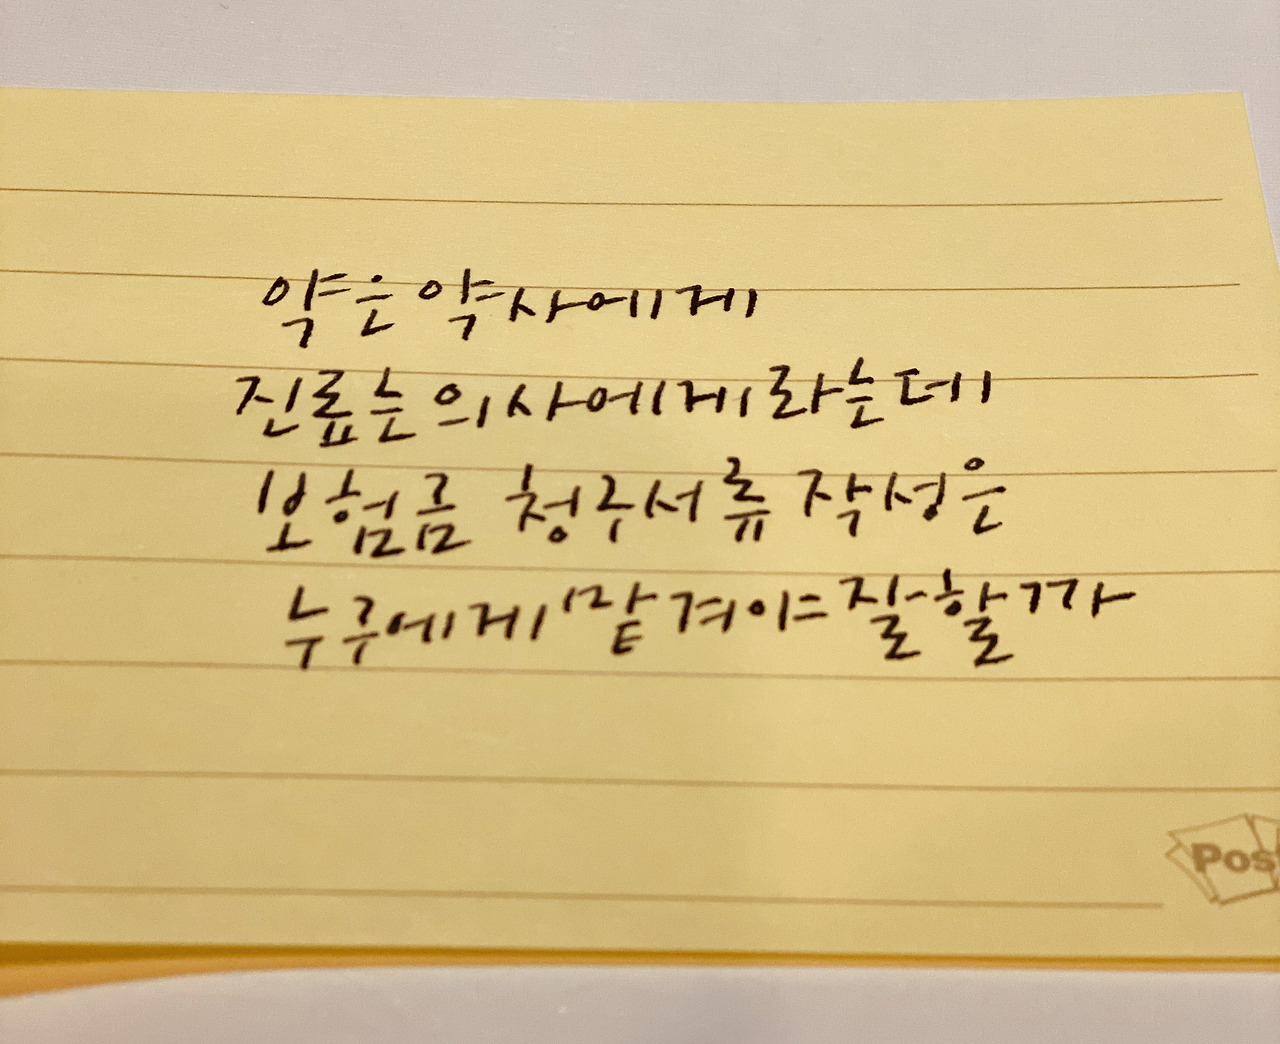 약은 약사에게
진료는 의사에게라는데
보험금 청구서류 작성은
누구에게 맡겨야 잘할까
Pos